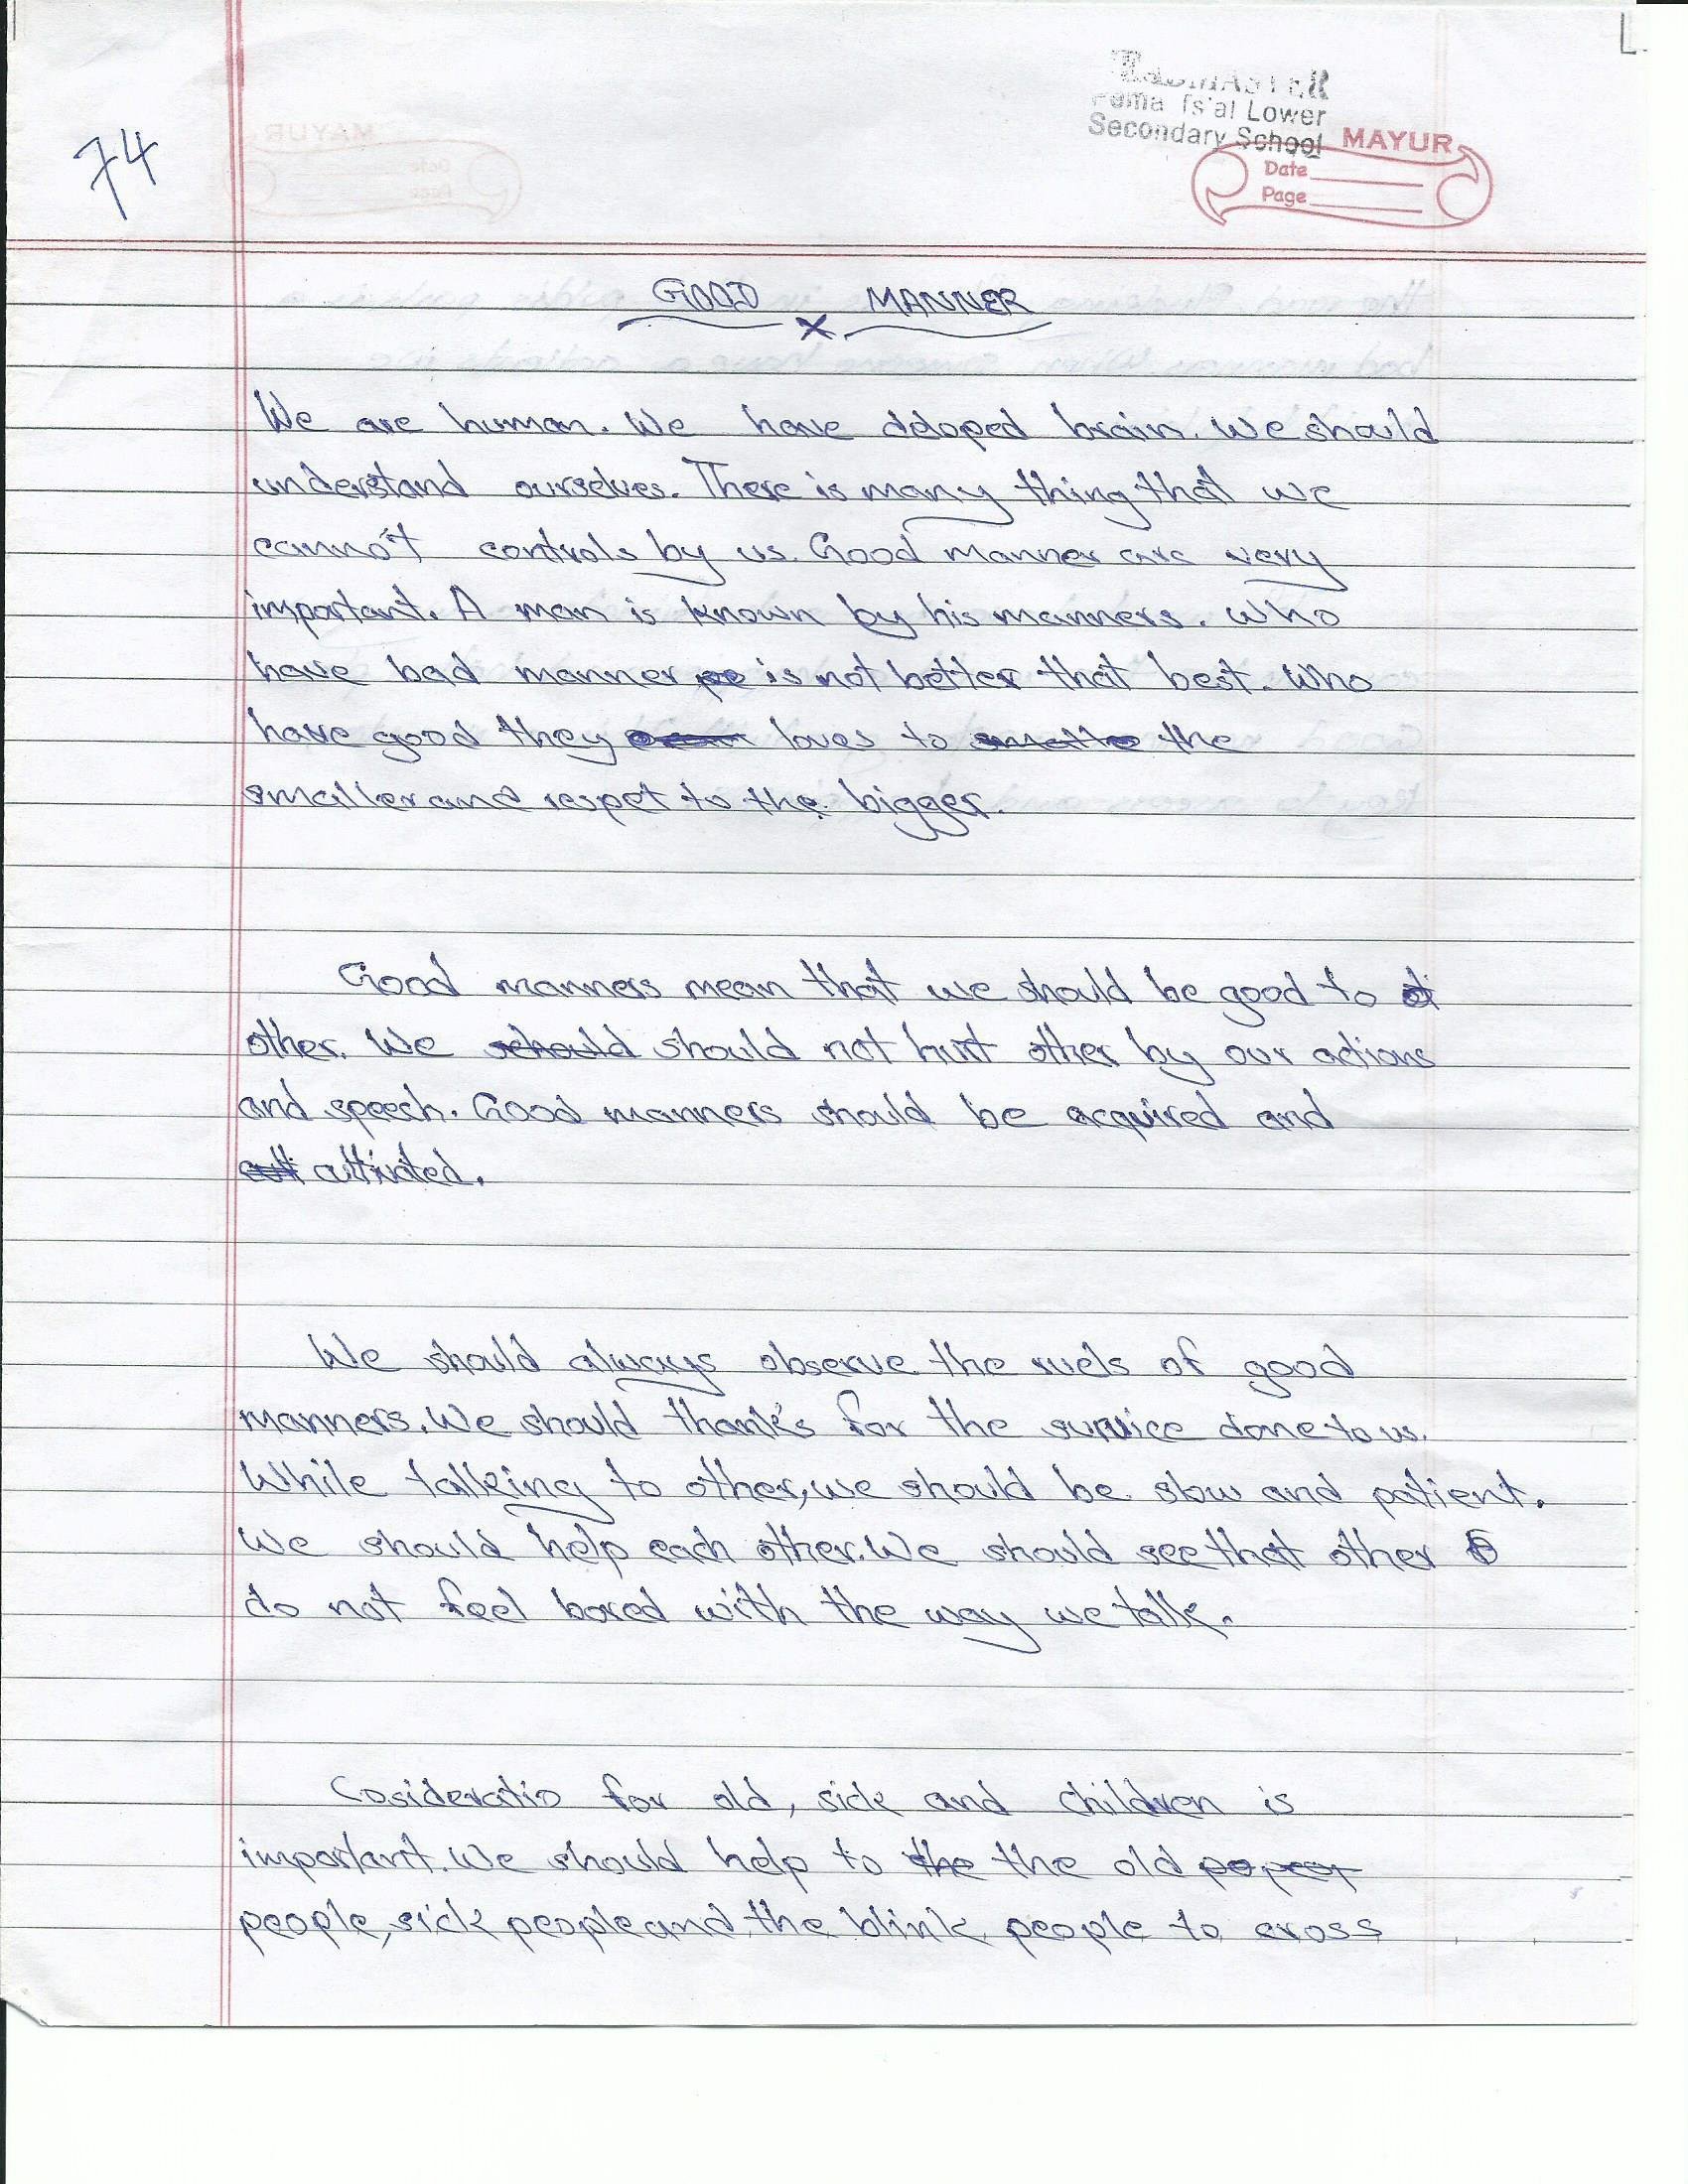 74
Secondary School
Lower
MAYUR
Date
Page
GOOD MANNER
x
We are human. We have deloped brain. We should
understand ourselves. There is many thing that we
cannot controls by us. Good manner are very
important. A man is known by his manners. Who
have bad manner is not better that best. Who
have good they loves to the
smaller and respet to the bigger.
Good manners mean that we should be good to
other. We should should not hurt other by our actions
and speech. Good manners should be acquired and
cultivated.
We should always observe the ruels of good
manners. We should thank's for the survice done to us.
While talking to other, we should be slow and patient.
We should help each other. We should see that other
do not feel bored with the way we talk.
Cosideratio for old, sick and children is
important. We should help to the the old
people, sick people and the blink people to cross